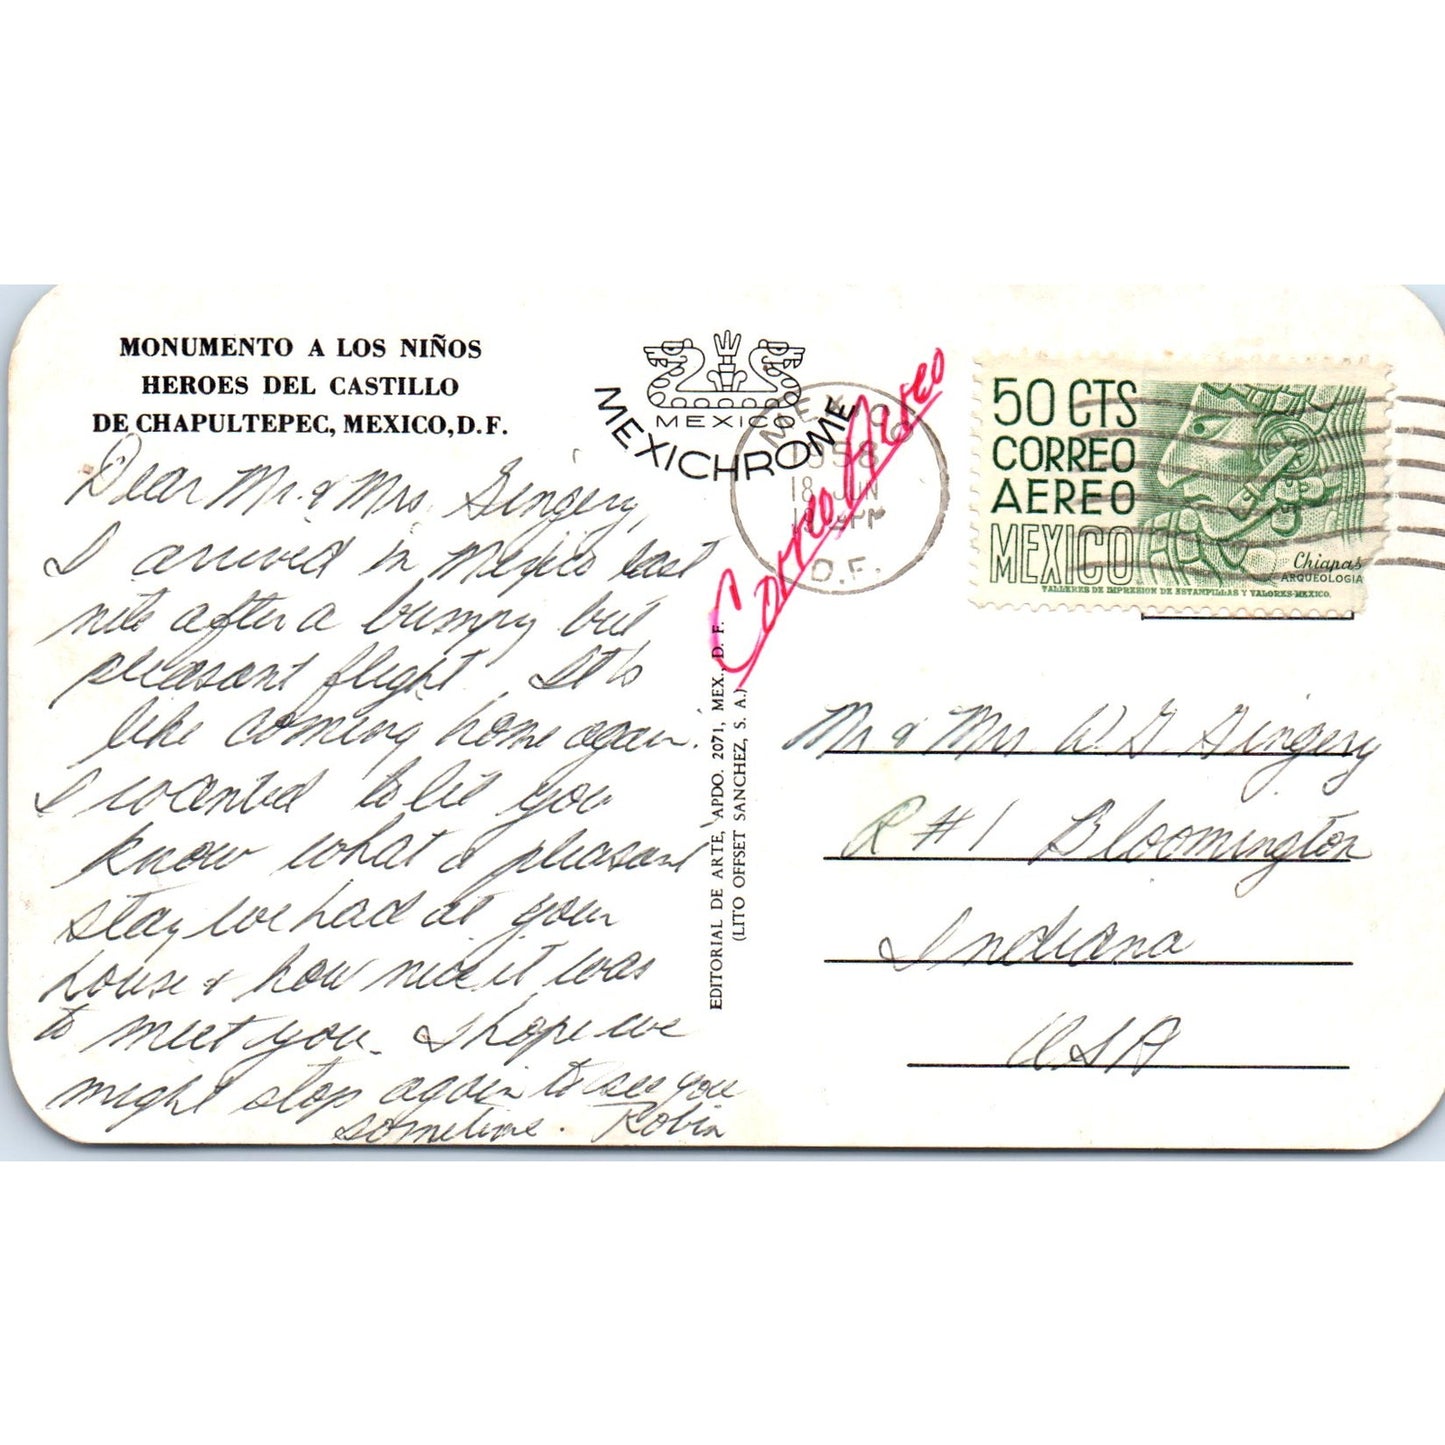 MONUMENTO A LOS NIÑOS
HEROES DEL CASTILLO
DE CHAPULTEPEC, MEXICO, D. F.
Dear Mr. & Mrs. Gingery,
I arrived in Mexico last
nite after a bumpy but
pleasant flight. It's
like coming home again.
I wanted to let you
know what a pleasant
stay we had at your
house & how nice it was
to meet you. I hope we
might stop again to see you
sometime. Robin
MEXICO
MEXICHROME
Correo Aereo
1958
18 JUN
D.F.
EDITORIAL DE ARTE, APDO. 2071, MEX., D. F.
(LITO OFFSET SANCHEZ, S. A.)
50 CTS
CORREO
AEREO
MEXICO
Chiapas
ARQUEOLOGIA
TALLERES DE IMPRESION DE ESTAMPILLAS Y VALORES-MEXICO.
Mr & Mrs W. G. Gingery
R #1 Bloomington
Indiana
USA